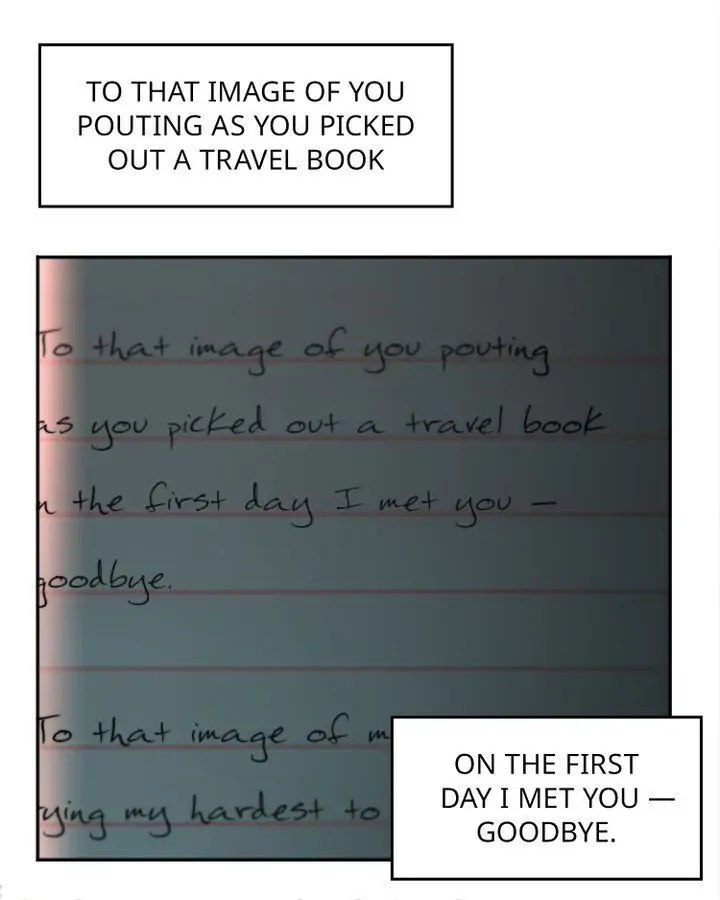 TO THAT IMAGE OF YOU
POUTING AS YOU PICKED
OUT A TRAVEL BOOK
To that image of you pouting
as you picked out a travel book
n the first day I met you —
goodbye.
To that image of m
ying my hardest to
ON THE FIRST
DAY I MET YOU —
GOODBYE.